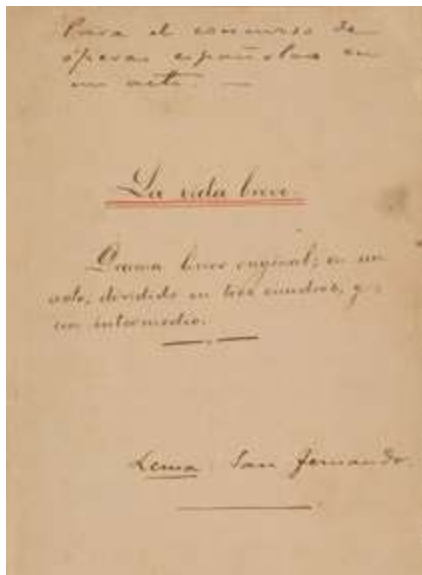 Para el concurso de
óperas españolas en
un acto. —
La vida breve.
Drama lírico original; en un
acto, dividido en tres cuadros, y
un intermedio.
Lema: San Fernando.